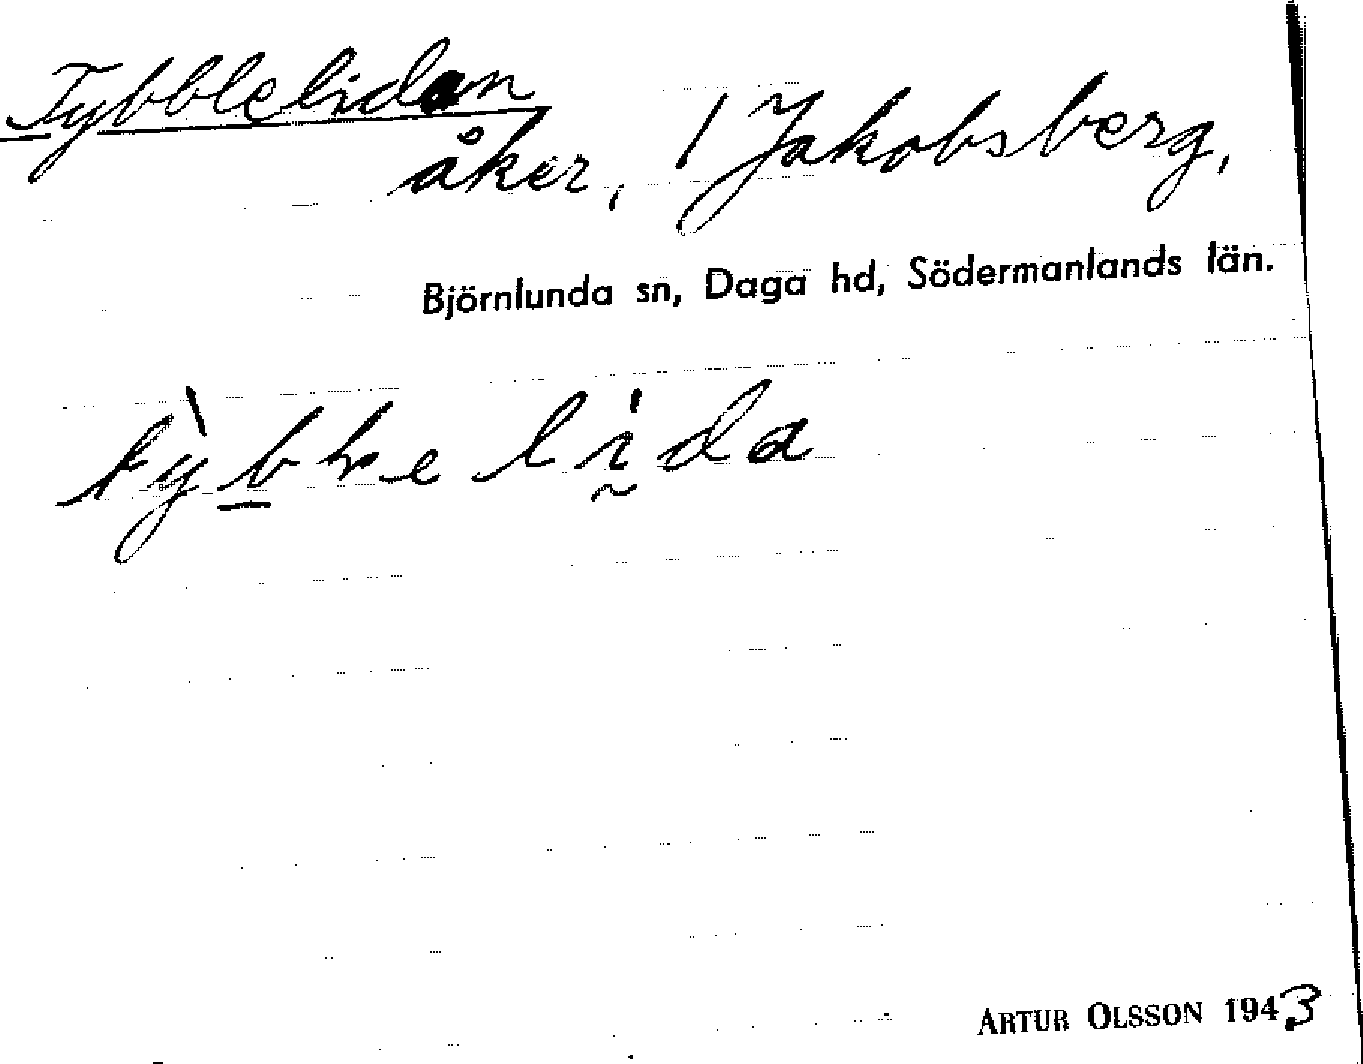 Tybblelidan
åker, / Jakobsberg,
Björnlunda sn, Daga hd, Södermanlands län.
lida
ARTUR OLSSON 1943